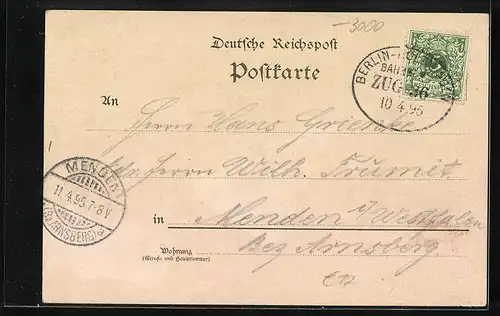 -3000
Deutsche Reichspost
Postkarte
BERLIN-
BAHN
ZUG
10 4 95
An
Herrn Hans
MENDEN
11.4.95.7-8V
(Bz. ARNSBERG)
Herrn Wilh.
in Menden i/ Westfalen
Bez Arnsberg
Wohnung
(Straße und Hausnummer)